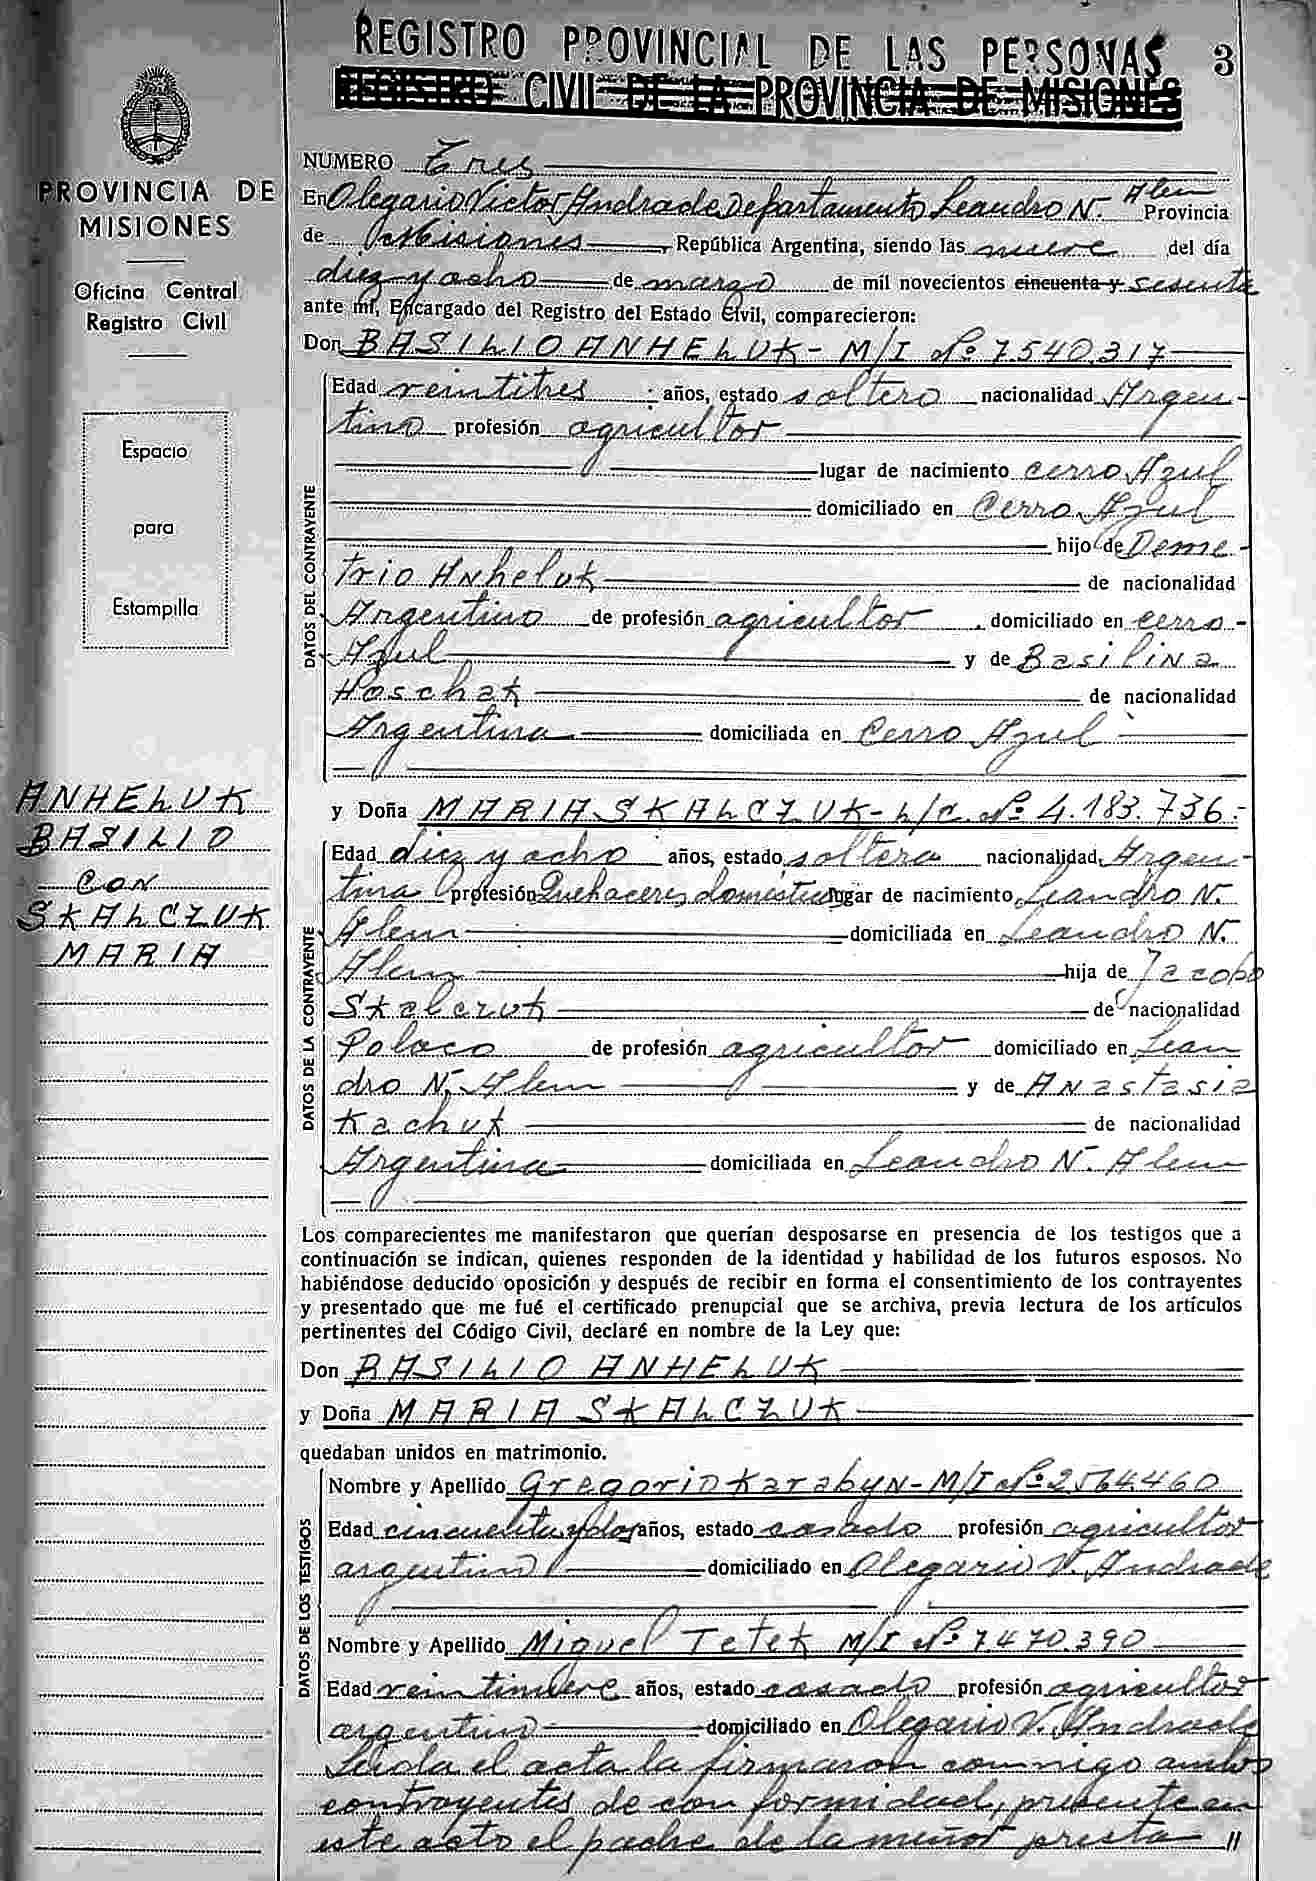 REGISTRO PROVINCIAL DE LAS PERSONAS 3
REGISTRO CIVIL DE LA PROVINCIA DE MISIONES
PROVINCIA DE
MISIONES
Oficina Central
Registro Civil
Espacio
para
Estampilla
ANHELUK
BASILIO
CON
SKALCZUK
MARIA
NUMERO Tres
En Olegario Victor Andrade Departamento Leandro N. Alem Provincia
de Misiones, República Argentina, siendo las nueve del día
diez y ocho de marzo de mil novecientos cincuenta y sesenta
ante mí, Encargado del Registro del Estado Civil, comparecieron:
Don BASILIO ANHELUK - M/I Nº 7.540.317
DATOS DEL CONTRAYENTE
Edad veintitres años, estado soltero nacionalidad Argen-
tino profesión agricultor
lugar de nacimiento Cerro Azul
domiciliado en Cerro Azul
hijo de Deme-
trio Anheluk de nacionalidad
Argentino de profesión agricultor domiciliado en Cerro-
Azul y de Basilina
Hoschak de nacionalidad
Argentina domiciliada en Cerro Azul
y Doña MARIA SKALCZUK - L/C. Nº 4.183.736.-
DATOS DE LA CONTRAYENTE
Edad diez y ocho años, estado soltera nacionalidad Argen-
tina profesión Quehaceres domésticos lugar de nacimiento Leandro N.
Alem domiciliada en Leandro N.
Alem hija de Jacobo
Skalczuk de nacionalidad
Polaco de profesión agricultor domiciliado en Lean
dro N. Alem y de Anastasia
Kachuk de nacionalidad
Argentina domiciliada en Leandro N. Alem
Los comparecientes me manifestaron que querían desposarse en presencia de los testigos que a
continuación se indican, quienes responden de la identidad y habilidad de los futuros esposos. No
habiéndose deducido oposición y después de recibir en forma el consentimiento de los contrayentes
y presentado que me fué el certificado prenupcial que se archiva, previa lectura de los artículos
pertinentes del Código Civil, declaré en nombre de la Ley que:
Don BASILIO ANHELUK
y Doña MARIA SKALCZUK
quedaban unidos en matrimonio.
DATOS DE LOS TESTIGOS
Nombre y Apellido Gregorio Karabyn - M/I Nº 2.564.460
Edad cincuenta y dos años, estado casado profesión agricultor
argentino domiciliado en Olegario V. Andrade
Nombre y Apellido Miguel Tetek M/I Nº 7.470.390
Edad veintinueve años, estado casado profesión agricultor
argentino domiciliado en Olegario V. Andrade
Leída el acta la firmaron conmigo ambos
contrayentes de conformidad, presente en
este acto el padre de la menor presta //